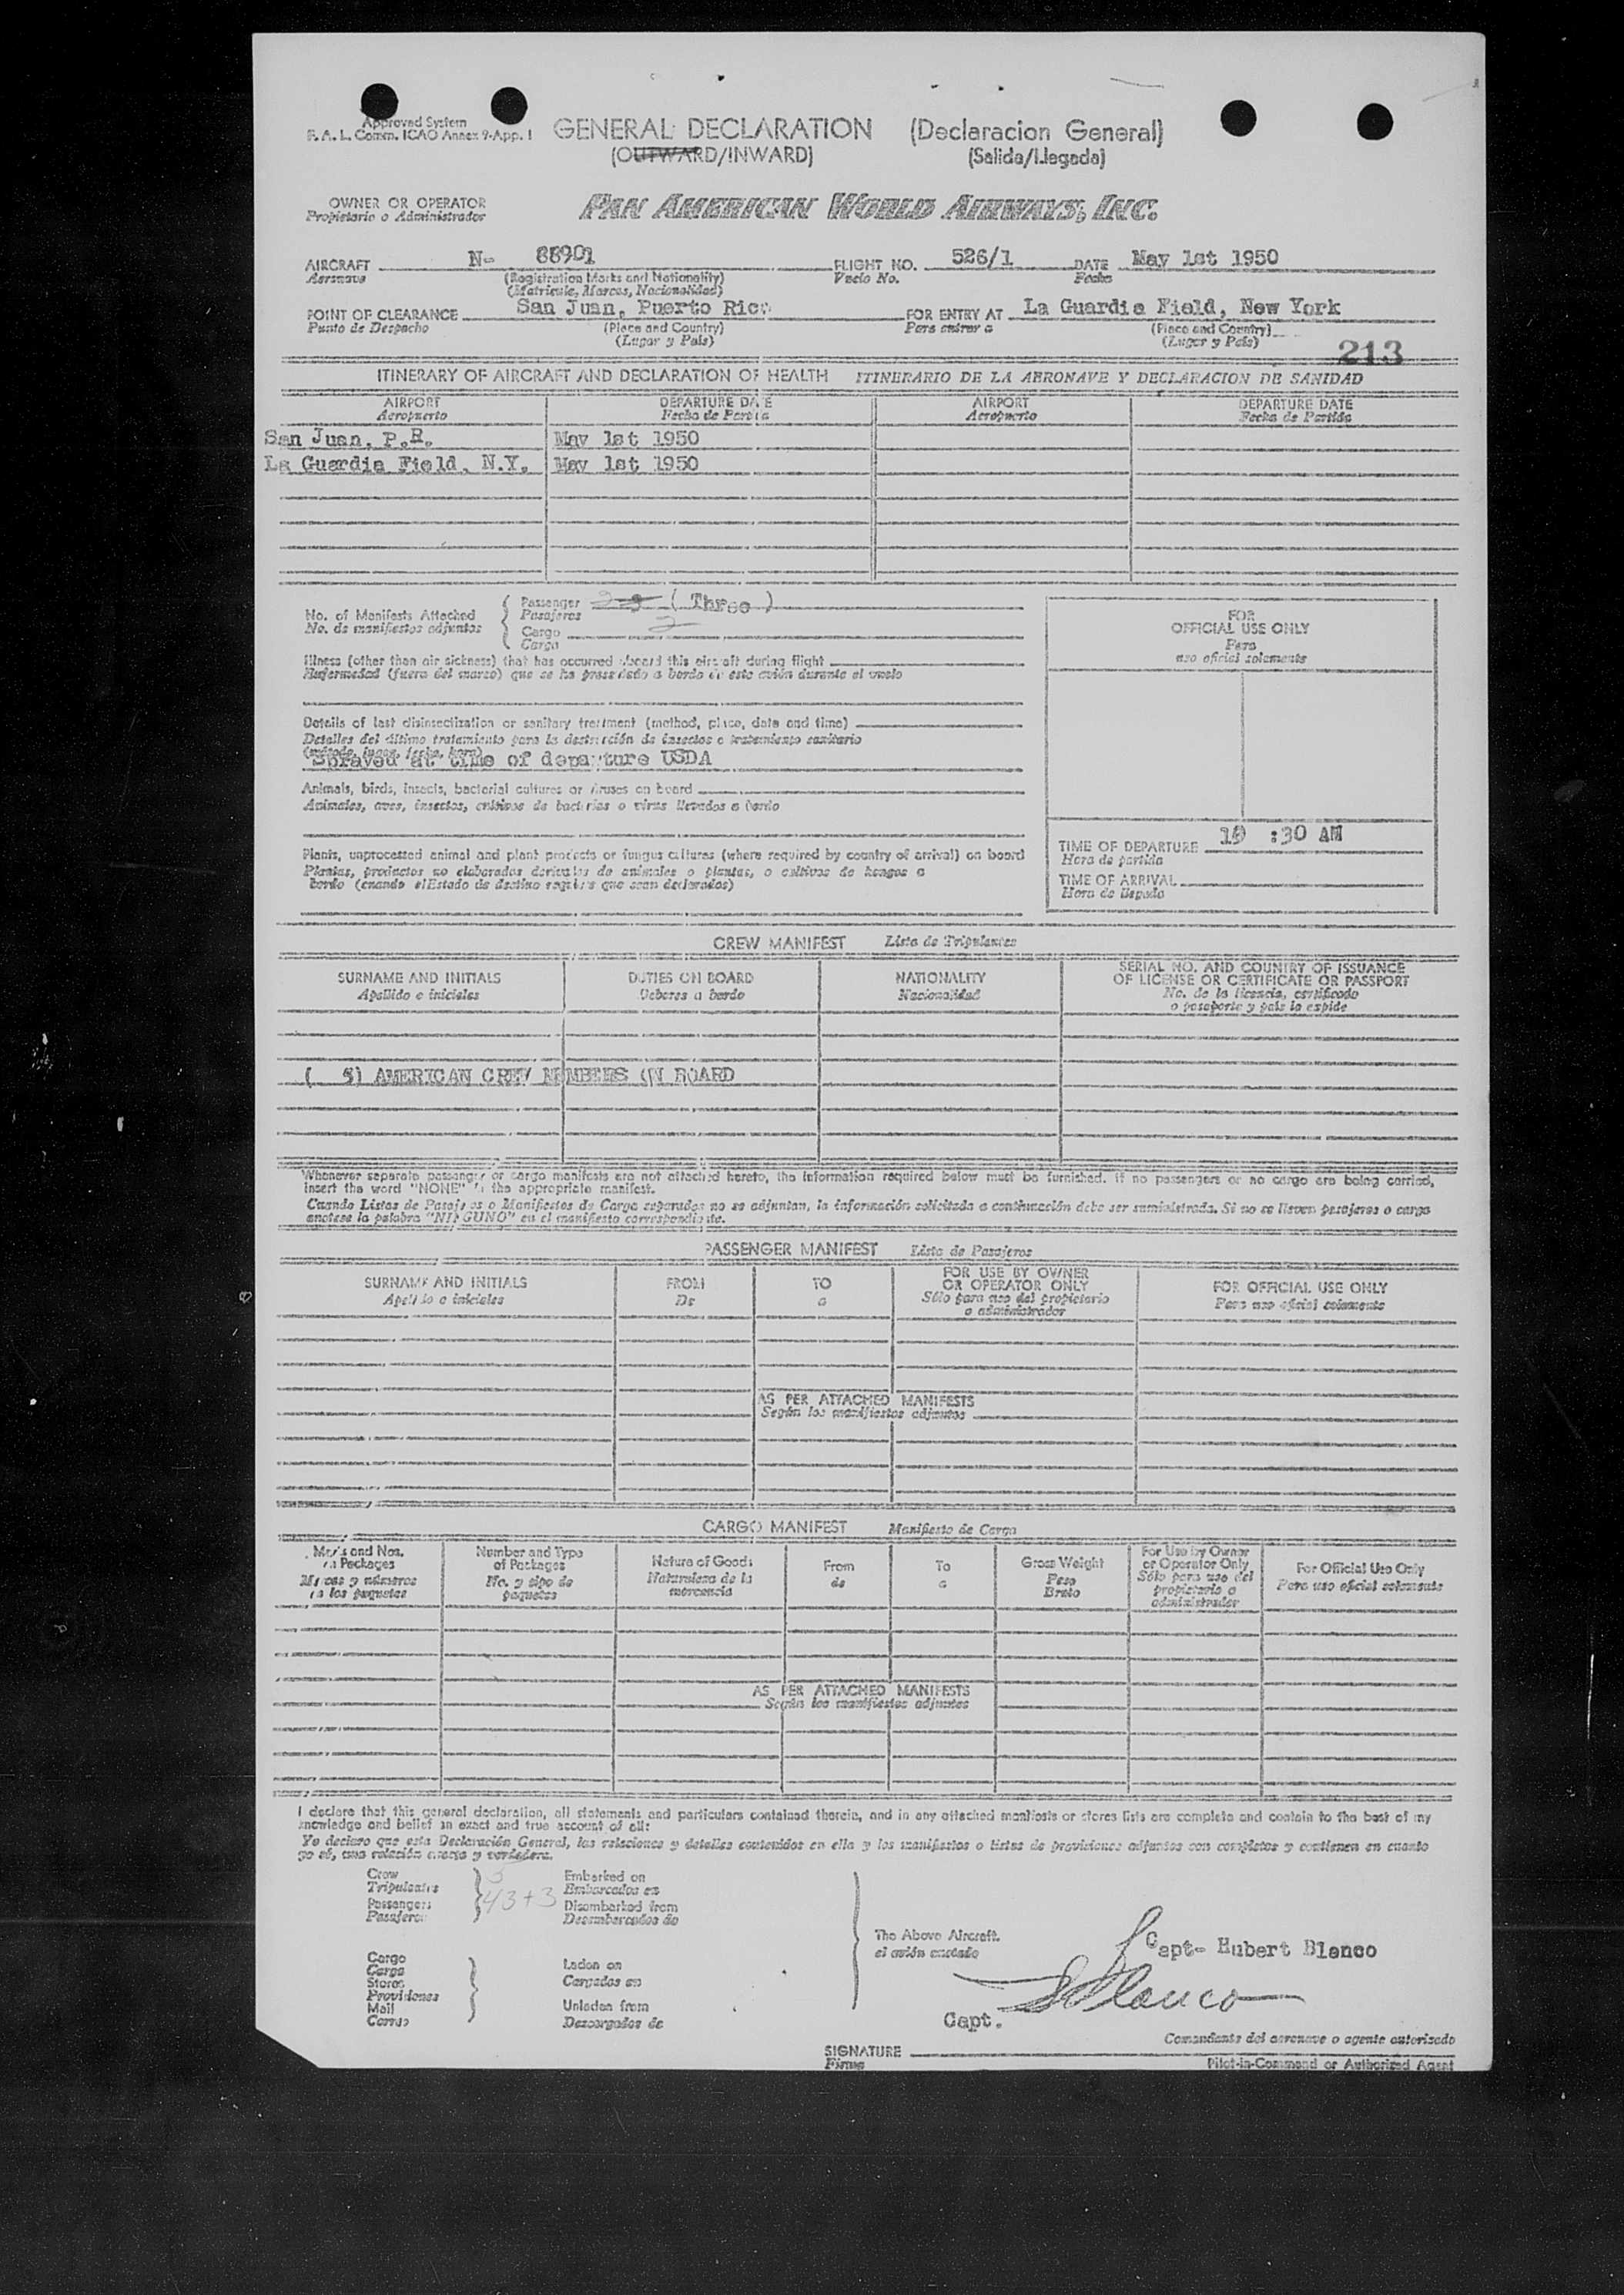 Approved System
F. A. L. Comm. ICAO Annex 9-App. I
GENERAL DECLARATION (Declaracion General)
(OUTWARD/INWARD) (Salida/Llegada)
OWNER OR OPERATOR
Propietario o Administrador
PAN AMERICAN WORLD AIRWAYS, INC.
AIRCRAFT N- 88901 FLIGHT NO. 526/1 DATE May 1st 1950
Aeronave (Registration Marks and Nationality) Vuelo No. Fecha
(Matricula, Marcas, Nacionalidad)
POINT OF CLEARANCE San Juan, Puerto Rico FOR ENTRY AT La Guardia Field, New York
Punto de Despacho (Place and Country) Para entrar a (Place and Country)
(Lugar y País) (Lugar y País)
213
ITINERARY OF AIRCRAFT AND DECLARATION OF HEALTH ITINERARIO DE LA AERONAVE Y DECLARACION DE SANIDAD
AIRPORT DEPARTURE DATE AIRPORT DEPARTURE DATE
Aeropuerto Fecha de Partida Aeropuerto Fecha de Partida
San Juan, P.R. May 1st 1950
La Guardia Field, N.Y. May 1st 1950
No. of Manifests Attached
No. de manifiestos adjuntos
Passenger 2 3 ( Three )
Pasajeros
Cargo 2
Carga
Illness (other than air sickness) that has occurred aboard this aircraft during flight
Enfermedad (fuera del mareo) que se ha presentado a bordo de este avión durante el vuelo
Details of last disinsectization or sanitary treatment (method, place, date and time)
Detalles del último tratamiento para la destrucción de insectos o tratamiento sanitario
(método, lugar, fecha, hora)
Sprayed at time of departure USDA
Animals, birds, insects, bacterial cultures or viruses on board
Animales, aves, insectos, cultivos de bacterias o virus llevados a bordo
Plants, unprocessed animal and plant products or fungus cultures (where required by country of arrival) on board
Plantas, productos no elaborados derivados de animales o plantas, o cultivos de hongos a
bordo (cuando el Estado de destino requiera que sean declarados)
FOR
OFFICIAL USE ONLY
Para
uso oficial solamente
TIME OF DEPARTURE 10 :30 AM
Hora de partida
TIME OF ARRIVAL
Hora de llegada
CREW MANIFEST Lista de Tripulantes
SURNAME AND INITIALS DUTIES ON BOARD NATIONALITY SERIAL NO. AND COUNTRY OF ISSUANCE
OF LICENSE OR CERTIFICATE OR PASSPORT
Apellido e iniciales Deberes a bordo Nacionalidad No. de la licencia, certificado
o pasaporte y país lo expide
( 5) AMERICAN CREW MEMBERS ON BOARD
Whenever separate passenger or cargo manifests are not attached hereto, the information required below must be furnished. If no passengers or no cargo are being carried,
insert the word "NONE" in the appropriate manifest.
Cuando Listas de Pasajeros o Manifiestos de Carga separados no se adjuntan, la información solicitada a continuación debe ser suministrada. Si no se lleven pasajeros o carga
anotese la palabra "NINGUNO" en el manifiesto correspondiente.
PASSENGER MANIFEST Lista de Pasajeros
SURNAME AND INITIALS FROM TO FOR USE BY OWNER
OR OPERATOR ONLY FOR OFFICIAL USE ONLY
Apellido e iniciales De a Sólo para uso del propietario
o administrador Para uso oficial solamente
AS PER ATTACHED MANIFESTS
Según los manifiestos adjuntos
CARGO MANIFEST Manifiesto de Carga
Marks and Nos.
on Packages
Marcas y números
en los paquetes
Number and Type
of Packages
No. y tipo de
paquetes
Nature of Goods
Naturaleza de la
mercancía
From
de
To
a
Gross Weight
Peso
Bruto
For Use by Owner
or Operator Only
Sólo para uso del
propietario o
administrador
For Official Use Only
Para uso oficial solamente
AS PER ATTACHED MANIFESTS
Según los manifiestos adjuntos
I declare that this general declaration, all statements and particulars contained therein, and in any attached manifests or stores lists are complete and contain to the best of my
knowledge and belief an exact and true account of all:
Yo declaro que esta Declaración General, las relaciones y detalles contenidos en ella y los manifiestos o listas de provisiones adjuntos son completos y contienen en cuanto
yo sé, una relación exacta y verdadera.
Crew 5 Embarked on
Tripulantes Embarcados en
Passengers 43+3 Disembarked from
Pasajeros Desembarcados de
The Above Aircraft.
el avión anotado
Cargo
Carga
Stores
Provisiones
Mail
Correo
Laden on
Cargados en
Unladen from
Descargados de
Capt- Hubert Blanco
Blanco
Capt.
Comandante del aeronave o agente autorizado
SIGNATURE
Firma
Pilot-in-Command or Authorized Agent